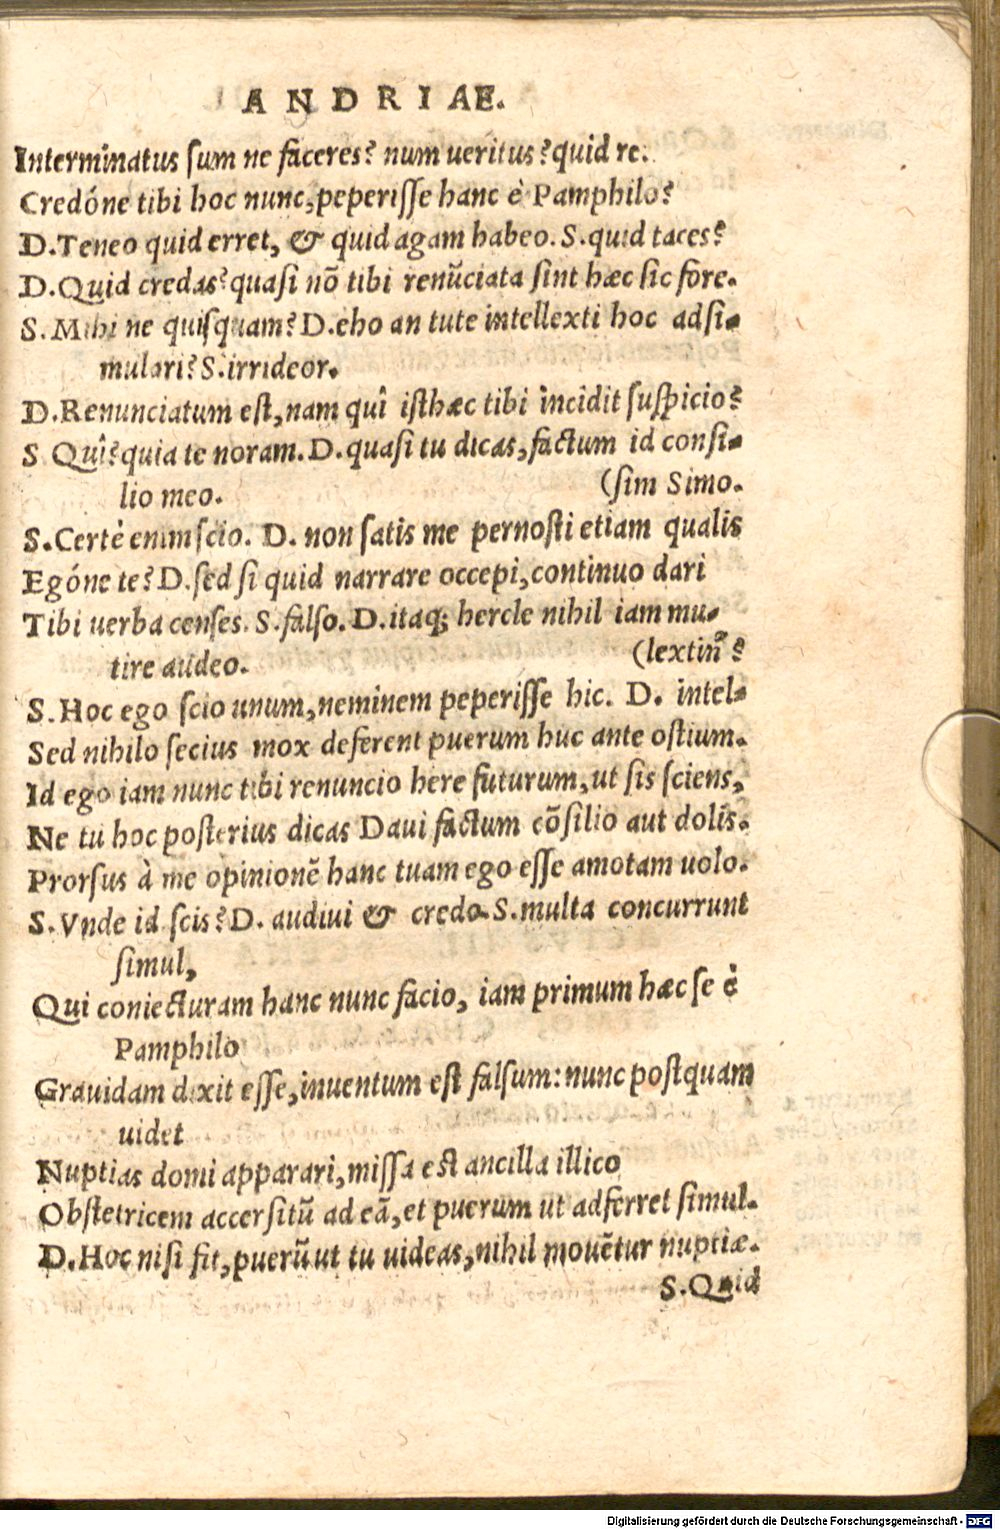 ANDRIAE.
Interminatus sum ne faceres? num ueritus? quid re.
Credóne tibi hoc nunc, peperisse hanc è Pamphilo?
D. Teneo quid erret, & quid agam habeo. S. quid taces?
D. Quid credas? quasi nõ tibi renũciata sint hæc sic fore.
S. Mihi ne quisquam? D. eho an tute intellexti hoc adsi-
mulari? S. irrideor.
D. Renunciatum est, nam quî isthæc tibi incidit suspicio?
S Quî? quia te noram. D. quasi tu dicas, factum id consi-
lio meo. (sim Simo.
S. Certè enim scio. D. non satis me pernosti etiam qualis
Egóne te? D. sed si quid narrare occepi, continuo dari
Tibi uerba censes. S. falso. D. itaq; hercle nihil iam mu-
tire audeo. (lextin'?
S. Hoc ego scio unum, neminem peperisse hic. D. intel-
Sed nihilo secius mox deferent puerum huc ante ostium.
Id ego iam nunc tibi renuncio here futurum, ut sis sciens,
Ne tu hoc posterius dicas Daui factum cõsilio aut dolis.
Prorsus à me opinionẽ hanc tuam ego esse amotam uolo.
S. Vnde id scis? D. audiui & credo. S. multa concurrunt
simul,
Qui coniecturam hanc nunc facio, iam primum hæc se è
Pamphilo
Grauidam dixit esse, inuentum est falsum: nunc postquam
uidet
Nuptias domi apparari, missa est ancilla illico
Obstetricem accersitũ ad eã, et puerum ut adferret simul.
D. Hoc nisi fit, puerũ ut tu uideas, nihil mouẽtur nuptiæ.
S. Quid
Digitalisierung gefördert durch die Deutsche Forschungsgemeinschaft - DFG